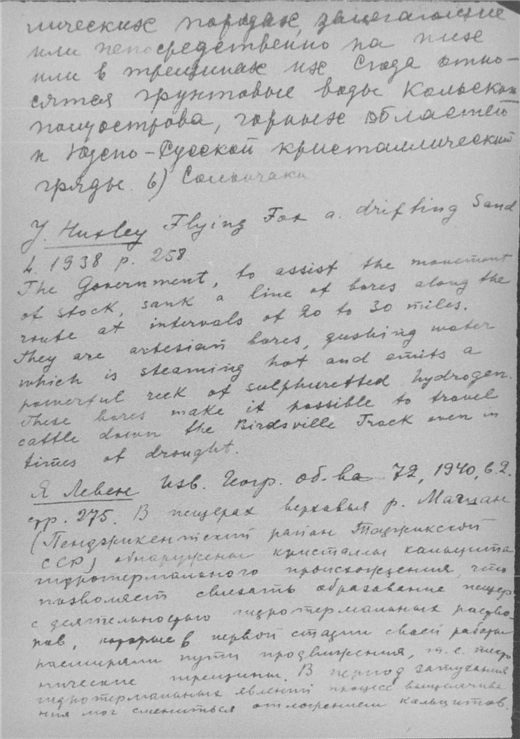 нических породах, залегающие
или непосредственно на них
или в трещинах их Сюда отно-
сятся грунтовые воды Кольского
полуострова, горных областей
и Южно-Русской кристаллической
гряды. б) Солончаки
J. Huxley Flying Fox a. drifting Sand
L. 1938 p. 258
The Government, to assist the movement
of stock, sank a line of bores along the
route at intervals of 20 to 30 miles.
They are artesian bores, gushing water
which is steaming hot and emits a
powerful reek of sulphuretted hydrogen.
These bores make it possible to travel
cattle down the Birdsville Track even in
times of drought.
Я Левен Изв. Геогр. об. ва 72, 1940, в. 2.
стр. 275. В пещерах верховья р. Магиан
(Пенджикентский район Таджикской
ССР) обнаружены кристаллы кальцита
гидротермального происхождения, что
позволяет связать образование пещер
с деятельностью гидротермальных раство-
ров, которые в первой стадии своей работы
расширяли пути продвижения, т. е.
трещины. В период затухания
гидротермальных явлений процесс выщелачива-
ния мог смениться отложением кальцитов.